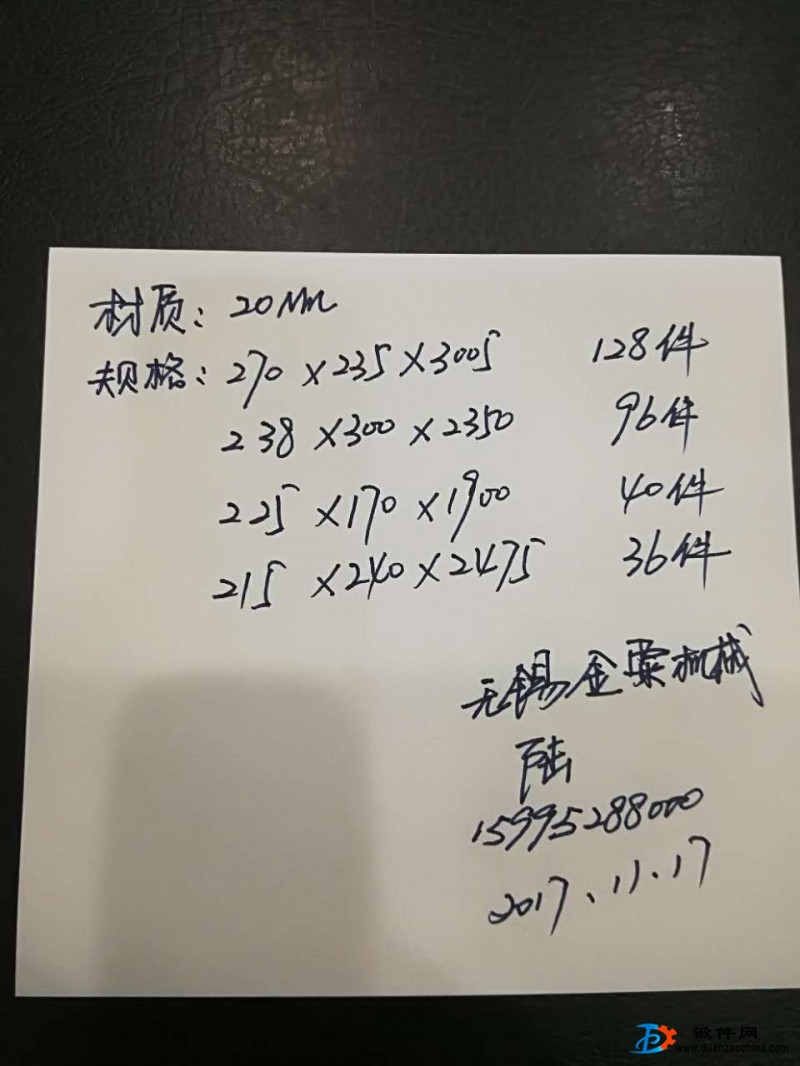 材质：20Mn
规格：270×235×3005 128件
238×300×2350 96件
225×170×1900 40件
215×240×2475 36件
无锡金粟机械
陆
15995288000
2017、11、17
锻件网
www.duanzaochina.com